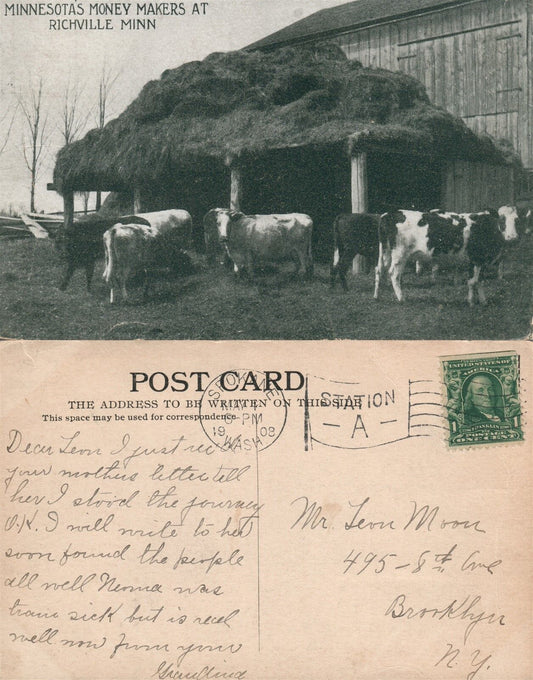 MINNESOTA'S MONEY MAKERS AT
RICHVILLE MINN
POST CARD
THE ADDRESS TO BE WRITTEN ON THIS SIDE
This space may be used for correspondence
SPOKANE
5-PM
1908
WASH.
STATION
A
UNITED STATES OF
AMERICA
FRANKLIN
1 POSTAGE 1
ONE CENT
Dear Leon I just rec
your mothers letter tell
her I stood the journey
O.K. I will write to her
soon found the people
all well Neoma was
train sick but is real
well now from your
Mr. Leon Moon
495-8th Ave
Brooklyn
N.Y.